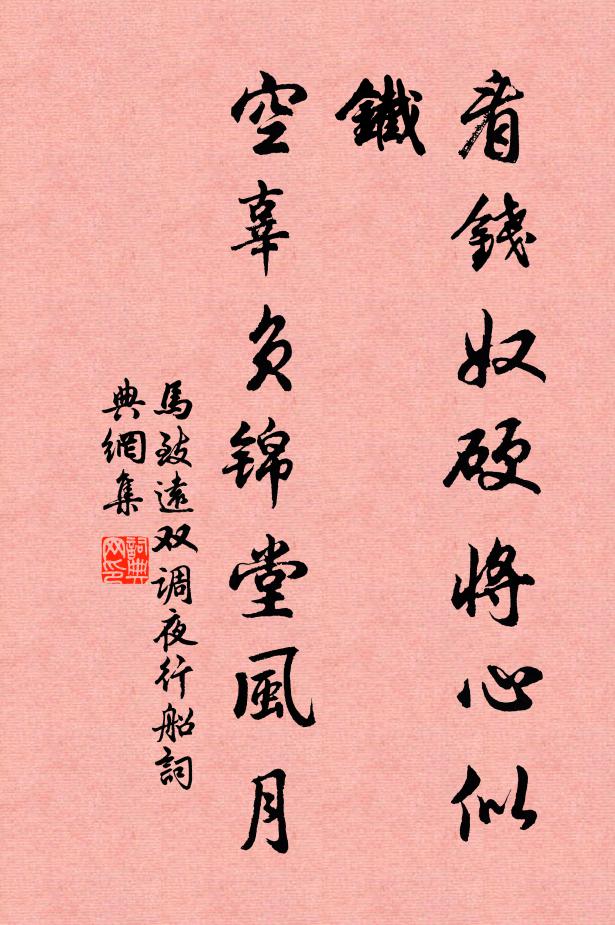 看錢奴硬將心似
鐵
空辜負錦堂風月
馬致遠双调夜行船詞
典網集
詞典
网印